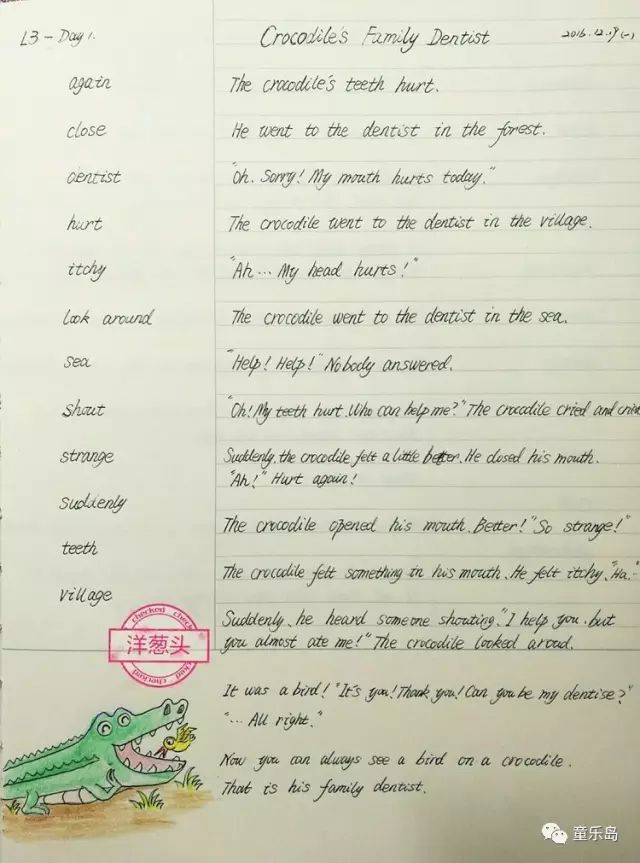 L3 - Day 1.
Crocodile's Family Dentist
2016.12.19(一)
again
close
dentist
hurt
itchy
look around
sea
shout
strange
suddenly
teeth
village
The crocodile's teeth hurt.
He went to the dentist in the forest.
"Oh. Sorry! My mouth hurts today."
The crocodile went to the dentist in the village.
"Ah... My head hurts!"
The crocodile went to the dentist in the sea.
"Help! Help!" Nobody answered.
"Oh! My teeth hurt. Who can help me?" The crocodile cried and cried
Suddenly, the crocodile felt a little better. He closed his mouth.
"Ah!" Hurt again!
The crocodile opened his mouth. Better! "So strange!"
The crocodile felt something in his mouth. He felt itchy. "Ha.."
Suddenly, he heard someone shouting. "I help you. but
you almost ate me!" The crocodile looked aroud.
It was a bird! "It's you! Thank you! Can you be my dentise?"
"... All right."
Now you can always see a bird on a crocodile.
That is his family dentist.
checked checked
洋葱头
checked
童乐岛